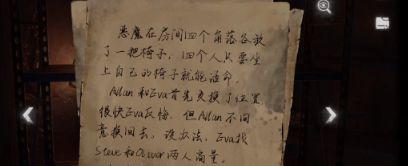 恶魔在房间四个角落各放
了一把椅子，四个人只要坐
上自己的椅子就能活命。
Allan和Eva首先交换了位置
很快Eva反悔，但Allan不同
意换回去。没办法，Eva找
Steve和Oliver两人商量。